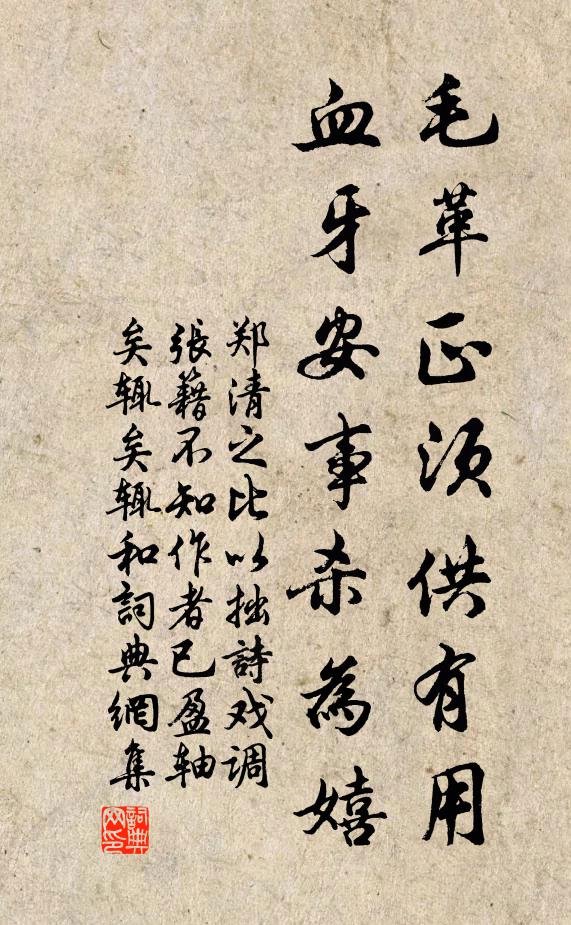 毛革正须供有用
血牙安事杀為嬉
郑清之比以拙詩戏调
張籍不知作者已盈轴
矣辄矣辄和詞典網集
詞典網印